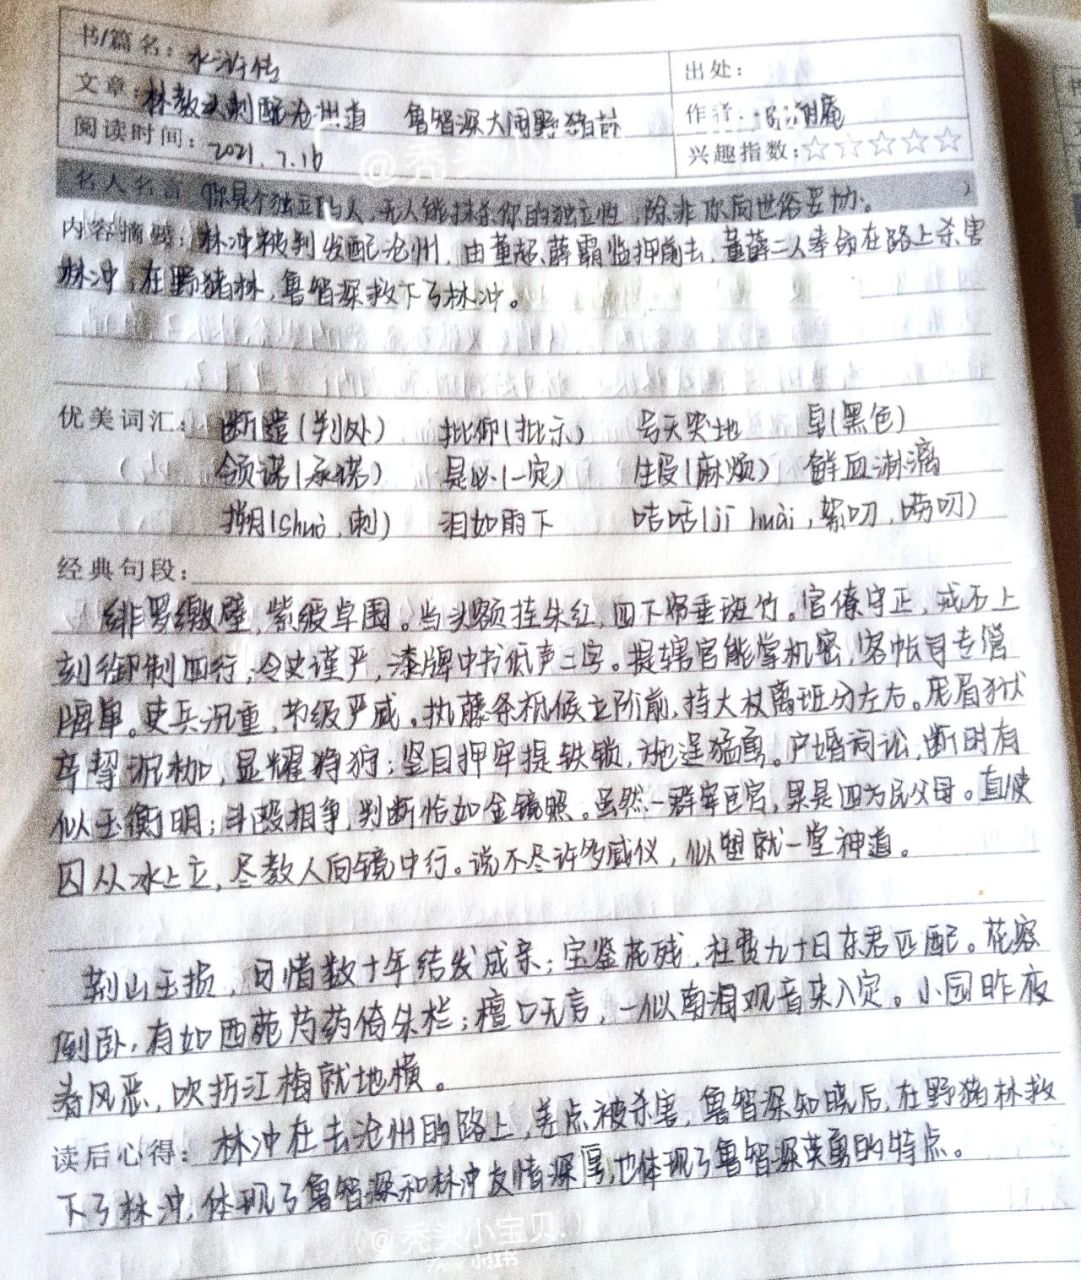 书/篇名：水浒传
出处：
文章：林教头刺配沧州道 鲁智深大闹野猪林
作者：施耐庵
阅读时间：2021.7.16
兴趣指数：☆☆☆☆☆
名人名言（你是个独立的人，无人能抹杀你的独立性，除非你向世俗妥协。）
内容摘要：林冲被判发配沧州，由董超、薛霸监押前去，董薛二人奉命在路上杀害
林冲，在野猪林，鲁智深救下了林冲。
优美词汇：断遣（判处） 批仰（批示） 号天哭地 皁（黑色）
领诺（承诺） 是必（一定） 生受（麻烦） 鲜血淋漓
搠（shuò，刺） 泪如雨下 咭咶（jī huài，絮叨，唠叨）
经典句段：
绯罗缴壁，紫绶卓围。当头额挂朱红，四下帘垂斑竹。官僚守正，戒石上
刻御制四行；令史谨严，漆牌中书低声二字。提辖官能掌机密，客帐司专管
牌单。吏兵沉重，节级严威。执藤条祗候立阶前，持大杖离班分左右。庞眉狱
卒挈沉枷，显耀狰狞；竖目押牢提铁锁，施逞猛勇。户婚词讼，断时有
似玉衡明；斗殴相争，判断恰如金镜照。虽然一郡宰臣官，果是四方民父母。直使
囚从冰上立，尽教人向镜中行。说不尽许多威仪，似塑就一堂神道。
荆山玉损，可惜数十年结发成亲；宝鉴花残，枉费九十日东君匹配。花容
倒卧，有如西苑芍药倚朱栏；檀口无言，一似南海观音来入定。小园昨夜
春风恶，吹折江梅就地横。
读后心得：林冲在去沧州的路上，差点被杀害，鲁智深知晓后，在野猪林救
下了林冲，体现了鲁智深和林冲友情深厚，也体现了鲁智深英勇的特点。
@秃头小宝贝.